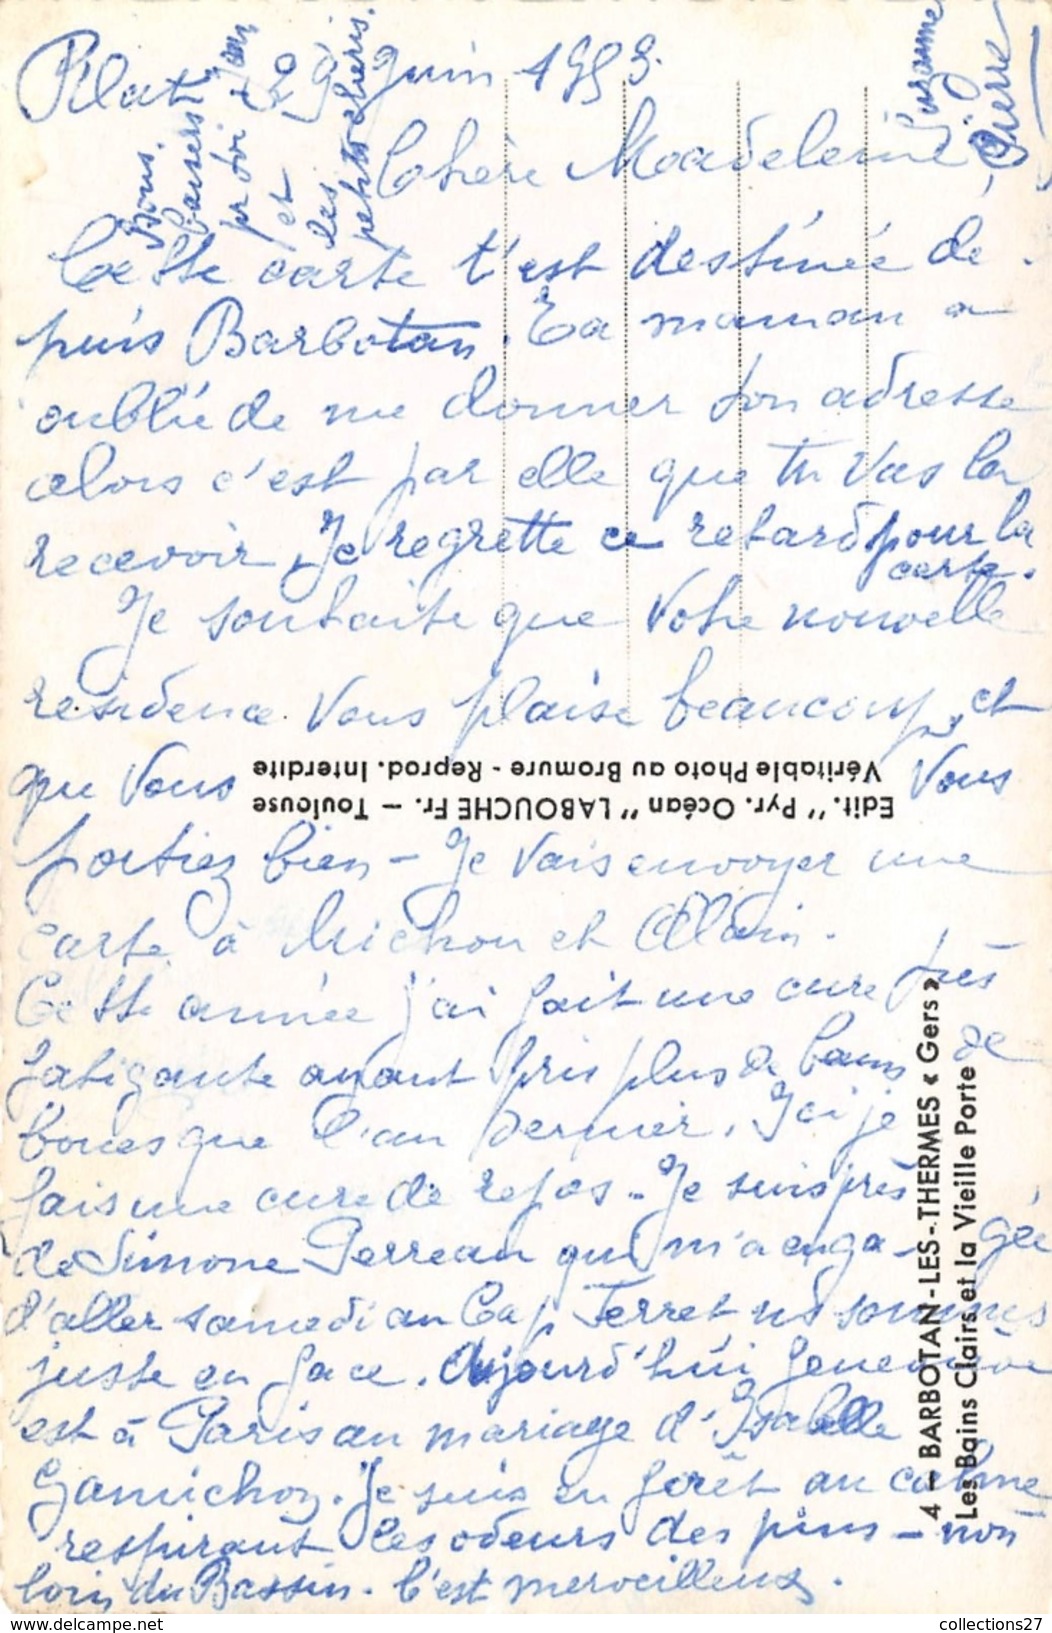 Pilat, 29 Juin 1959.
Chère Madeleine,
Cette carte t'est destinée de-
puis Barbotan. Ta maman a
oublié de me donner ton adresse
alors c'est par elle que tu vas la
recevoir. Je regrette ce retard pour la
carte.
Je souhaite que votre nouvelle
résidence vous plaise beaucoup, et
que vous vous
portiez bien - Je vais envoyer une
carte à Michou et Alain.
Cette année j'ai fait une cure très
fatigante ayant pris plus de bains de
boues que l'an dernier. Ici je
fais une cure de repos. Je suis près
de Simone Perreau qui m'a enga-gée
d'aller samedi au Cap Ferret ns sommes
juste en face. Aujourd'hui Geneviève
est à Paris au mariage d'Isabelle
Je suis en forêt au calme
respirant les odeurs des pins - non
loin du Bassin. C'est merveilleux.
Bons
baisers
pr toi Jean
et
les
petits chéris.
Suzanne
Pierre
Edit. "Pyr. Océan" LABOUCHE Fr. — Toulouse
Véritable Photo au Bromure - Reprod. Interdite
4 — BARBOTAN-LES-THERMES « Gers »
Les Bains Clairs et la Vieille Porte
collections27